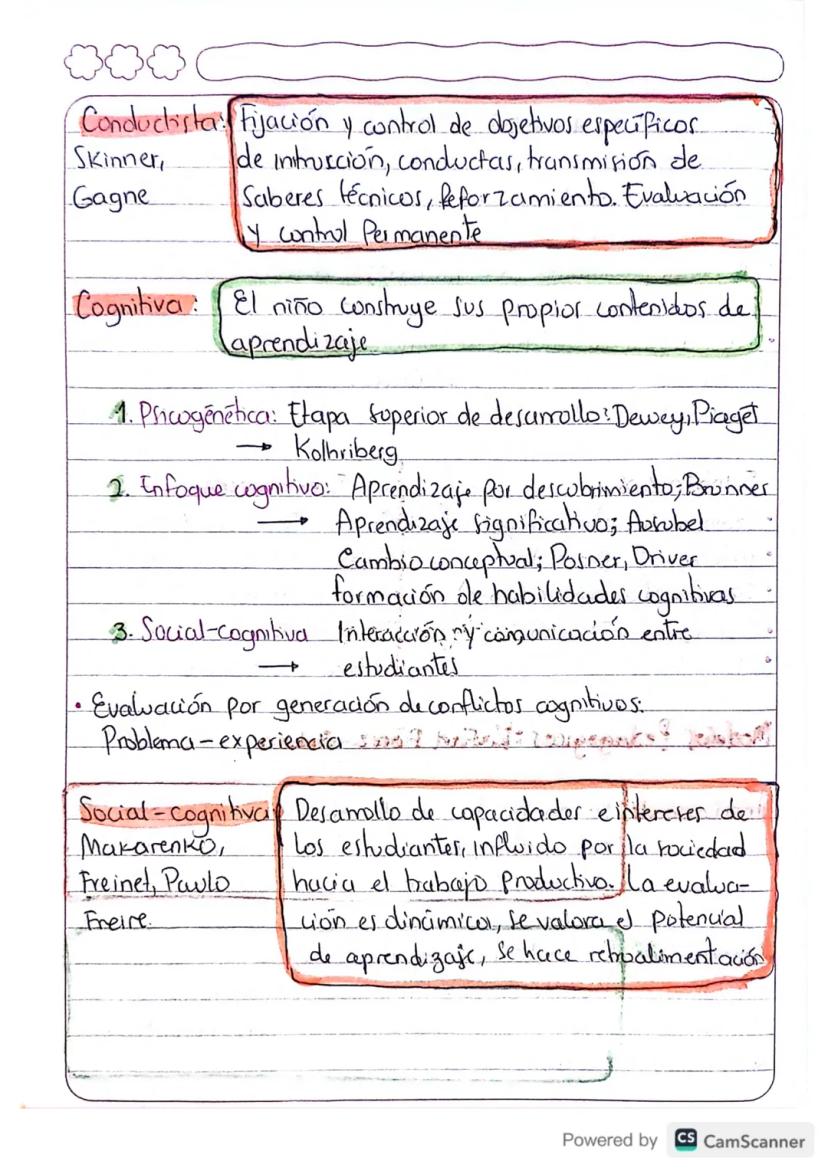 Conductista: Fijación y control de objetivos específicos
Skinner, de intrucción, conductas, transmisión de
Gagne Saberes técnicos, Reforzamiento. Evaluación
y control Permanente
Cognitiva: El niño construye sus propios contenidos de
aprendizaje
1. Psicogénetica: Etapa superior de desarrollo: Dewey, Piaget
→ Kolhriberg
2. Enfoque cognitivo: Aprendizaje por descubrimiento; Brunner
→ Aprendizaje significativo; Ausubel
Cambio conceptual; Posner, Driver
formación de habilidades cognitivas
3. Social-cognitiva Interacción y comunicación entre
→ estudiantes
• Evaluación por generación de conflictos cognitivos.
Problema-experiencia
Social-cognitiva Desarrollo de capacidades e intereses de
Makarenko, los estudiantes, influido por la sociedad
Freinet, Paulo hacia el trabajo productivo. La evalua-
Freire. ción es dinámica, se valora el potencial
de aprendizaje, se hace retroalimentación
Powered by CS CamScanner